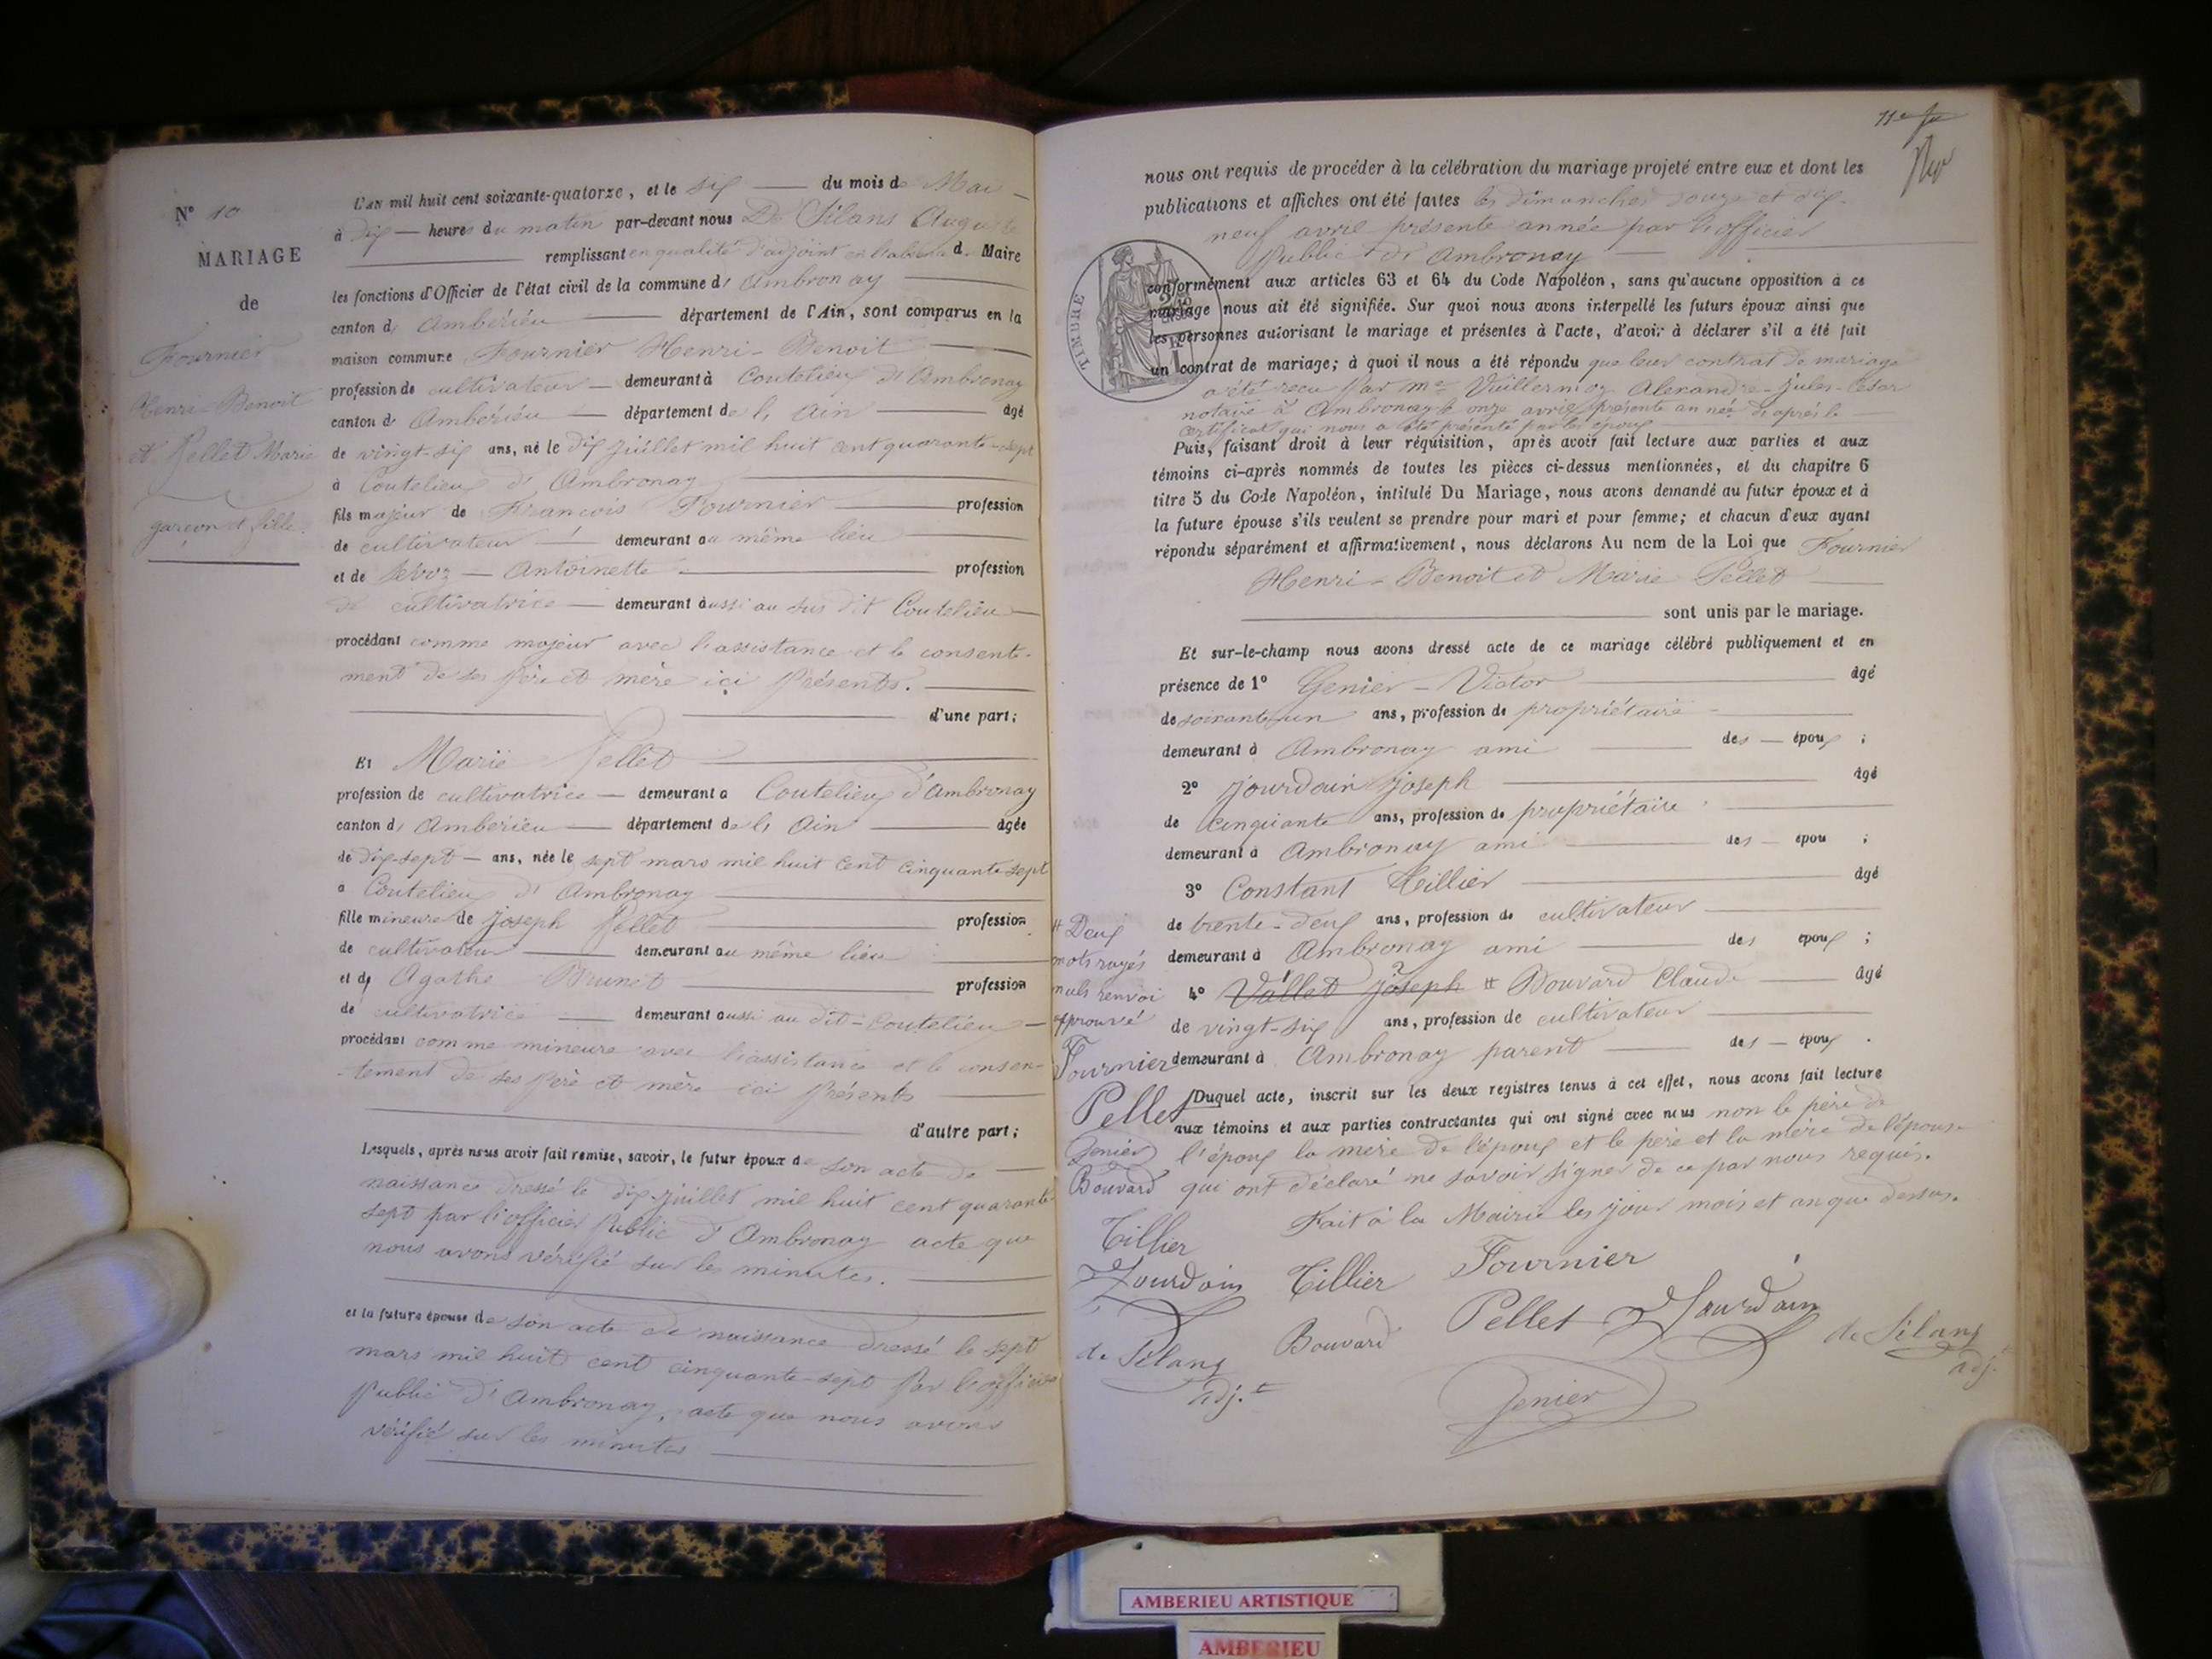 N° 10
MARIAGE
de
Fournier
Henri-Benoit
et Pellet Marie
garçon et fille.
L'AN mil huit cent soixante-quatorze, et le six du mois de Mai
à dix heures du matin par-devant nous De Silans Auguste
remplissant en qualité d'adjoint en l'absence du Maire
les fonctions d'Officier de l'état civil de la commune d'Ambronay
canton d'Ambérieu département de l'Ain, sont comparus en la
maison commune Fournier Henri-Benoit
profession de cultivateur demeurant à Coutelieux d'Ambronay
canton d'Ambérieu département de l'Ain âgé
de vingt-six ans, né le dix juillet mil huit cent quarante-sept
à Coutelieux d'Ambronay
fils majeur de François Fournier profession
de cultivateur demeurant au même lieu
et de Antoinette profession
de cultivatrice demeurant aussi au sus dit Coutelieu
procédant comme majeur avec l'assistance et le consente-
ment de ses père et mère ici présents.
d'une part;
Et Marie Pellet
profession de cultivatrice demeurant à Coutelieux d'Ambronay
canton d'Ambérieu département de l'Ain âgée
de dix-sept ans, née le sept mars mil huit cent cinquante-sept
à Coutelieux d'Ambronay
fille mineure de Joseph Pellet profession
de cultivateur demeurant au même lieu
et d'Agathe Brunet profession
de cultivatrice demeurant aussi au dit-Coutelieu
procédant comme mineure avec l'assistance et le consen-
-tement de ses père et mère ici présents
d'autre part;
Lesquels, après nous avoir fait remise, savoir, le futur époux de son acte de
naissance dressé le dix juillet mil huit cent quarante
sept par l'officier public d'Ambronay acte que
nous avons vérifié sur les minutes.
et la future épouse de son acte de naissance dressé le sept
mars mil huit cent cinquante-sept par l'officier
public d'Ambronay, acte que nous avons
vérifié sur les minutes
nous ont requis de procéder à la célébration du mariage projeté entre eux et dont les
publications et affiches ont été faites les dimanches douze et dix-
neuf avril présente année par l'officier
public d'Ambronay
TIMBRE
conformément aux articles 63 et 64 du Code Napoléon, sans qu'aucune opposition à ce
mariage nous ait été signifiée. Sur quoi nous avons interpellé les futurs époux ainsi que
les personnes autorisant le mariage et présentes à l'acte, d'avoir à déclarer s'il a été fait
un contrat de mariage; à quoi il nous a été répondu que leur contrat de mariage
a été reçu par Me Vuillermoz Alexandre-Jules-César
notaire à Ambronay le onze avril présente année d'après le
certificat qui nous a été présenté par les époux
Puis, faisant droit à leur réquisition, après avoir fait lecture aux parties et aux
témoins ci-après nommés de toutes les pièces ci-dessus mentionnées, et du chapitre 6
titre 5 du Code Napoléon, intitulé Du Mariage, nous avons demandé au futur époux et à
la future épouse s'ils veulent se prendre pour mari et pour femme; et chacun d'eux ayant
répondu séparément et affirmativement, nous déclarons Au nom de la Loi que Fournier
Henri-Benoit et Marie Pellet
sont unis par le mariage.
Et sur-le-champ nous avons dressé acte de ce mariage célébré publiquement et en
présence de 1° Genier-Victor âgé
de soixante-un ans, profession de propriétaire
demeurant à Ambronay ami des époux;
2° Jourdain Joseph âgé
de cinquante ans, profession de propriétaire
demeurant à Ambronay ami des épou;
3° Constant Tillier âgé
de trente-deux ans, profession de cultivateur
demeurant à Ambronay ami des époux;
4° Vallet Joseph # Bouvard Claude âgé
de vingt-six ans, profession de cultivateur
demeurant à Ambronay parent des époux.
Duquel acte, inscrit sur les deux registres tenus à cet effet, nous avons fait lecture
aux témoins et aux parties contractantes qui ont signé avec nous non le père de
l'époux la mère de l'époux et le père et la mère de l'épouse
qui ont déclaré ne savoir signer de ce par nous requis.
Fait à la Mairie les jour mois et an que dessus.
# Deux
mots rayés
nuls renvoi
approuvé
Fournier
Pellet
Genier
Bouvard
Tillier
Jourdain
de Silans
adj.t
Tillier
Fournier
Bouvard
Pellet
Jourdain
de Silans
adj.t
Genier
AMBERIEU ARTISTIQUE
AMBERIEU